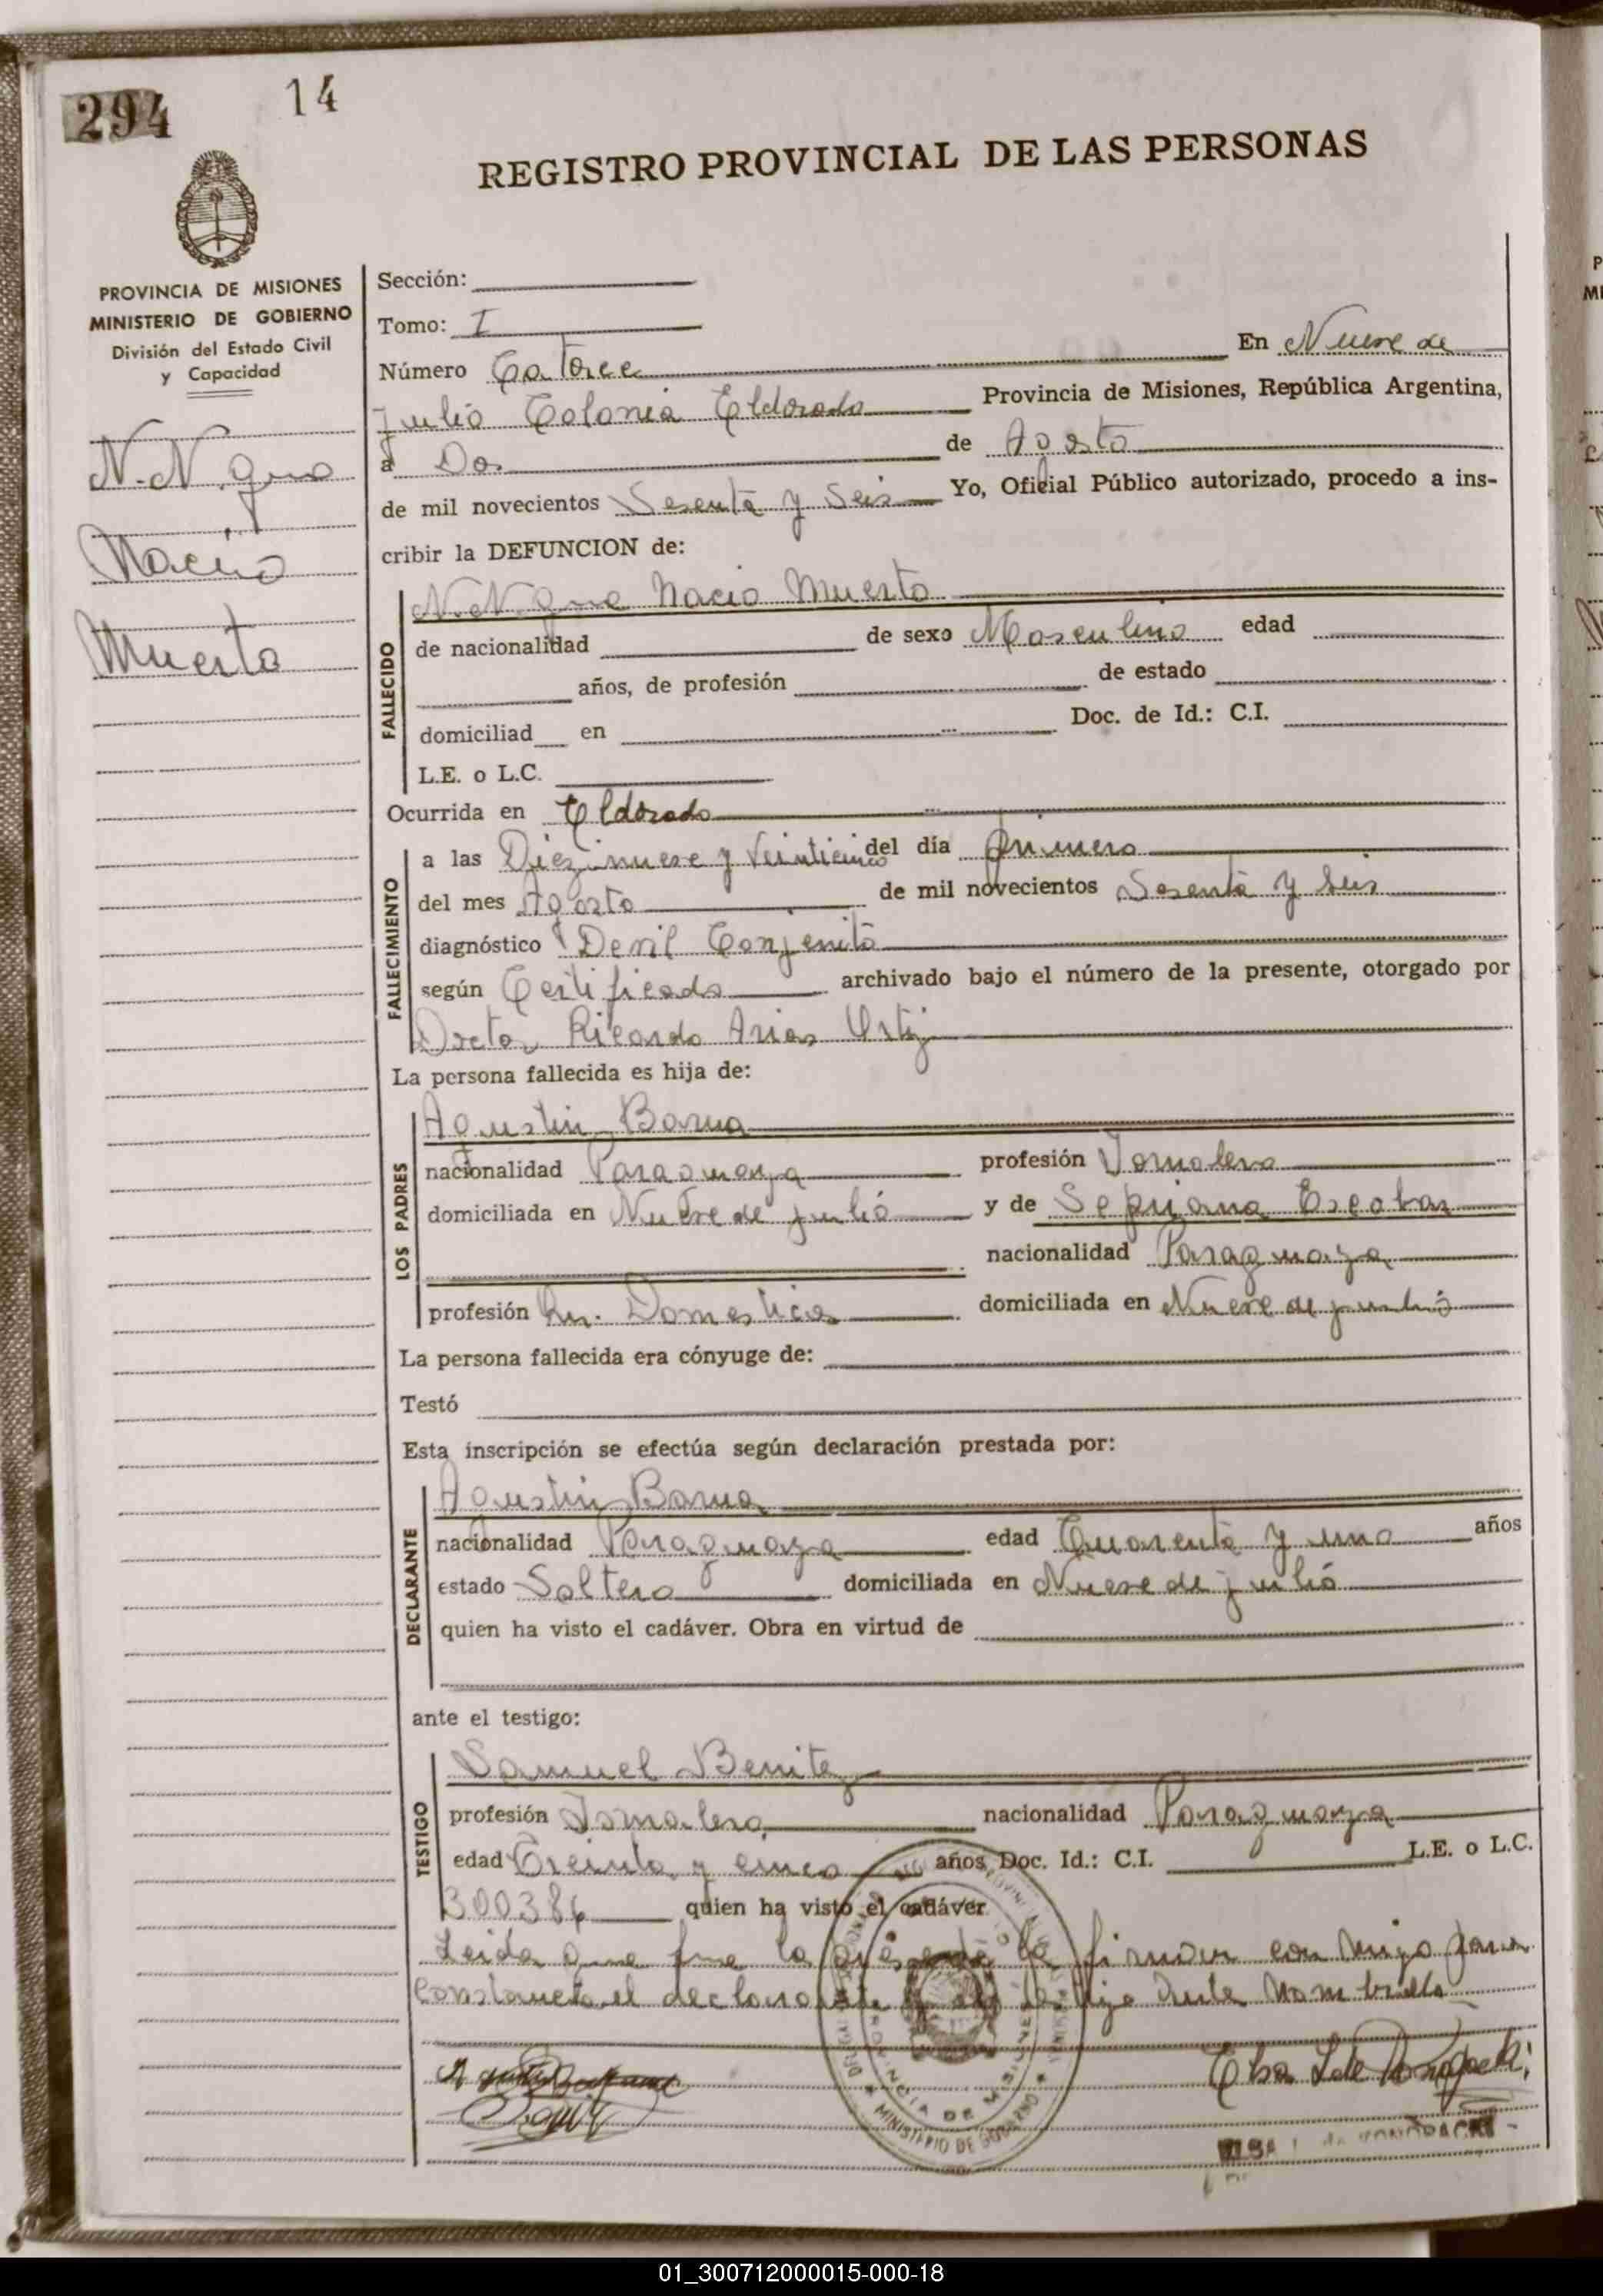 294 14
REGISTRO PROVINCIAL DE LAS PERSONAS
PROVINCIA DE MISIONES
MINISTERIO DE GOBIERNO
División del Estado Civil
y Capacidad
N.N. que
Nacio
Muerto
Sección:
Tomo: I
Número Catorce En Nueve de
Julio Colonia Eldorado Provincia de Misiones, República Argentina,
a Dos de Agosto
de mil novecientos Sesenta y Seis Yo, Oficial Público autorizado, procedo a ins-
cribir la DEFUNCION de:
FALLECIDO
N.N. que Nacio Muerto
de nacionalidad de sexo Masculino edad
años, de profesión de estado
domiciliad en Doc. de Id.: C.I.
L.E. o L.C.
Ocurrida en Eldorado
FALLECIMIENTO
a las Diezinueve y Veinticinco del día primero
del mes Agosto de mil novecientos Sesenta y Seis
diagnóstico Devil Conjenito
según Certificado archivado bajo el número de la presente, otorgado por
Doctor Ricardo Arias
La persona fallecida es hija de:
LOS PADRES
Agustin
nacionalidad Paraguaya profesión Jornalero
domiciliada en Nueve de julio y de Sepriana Escobar
nacionalidad Paraguaya
profesión Domesticos domiciliada en Nueve de julio
La persona fallecida era cónyuge de:
Testó
Esta inscripción se efectúa según declaración prestada por:
DECLARANTE
Agustin
nacionalidad Paraguaya edad Cuarenta y uno años
estado Soltero domiciliada en Nueve de julio
quien ha visto el cadáver. Obra en virtud de
ante el testigo:
TESTIGO
Samuel Benitez
profesión Jornalero nacionalidad Paraguaya
edad Treinta y cinco años Doc. Id.: C.I. L.E. o L.C.
300386 quien ha visto el cadáver
Leida que fue la presente la firman con migo para
constancia el declarante y el testigo
PROVINCIA DE MISIONES
MINISTERIO DE GOBIERNO
01_300712000015-000-18